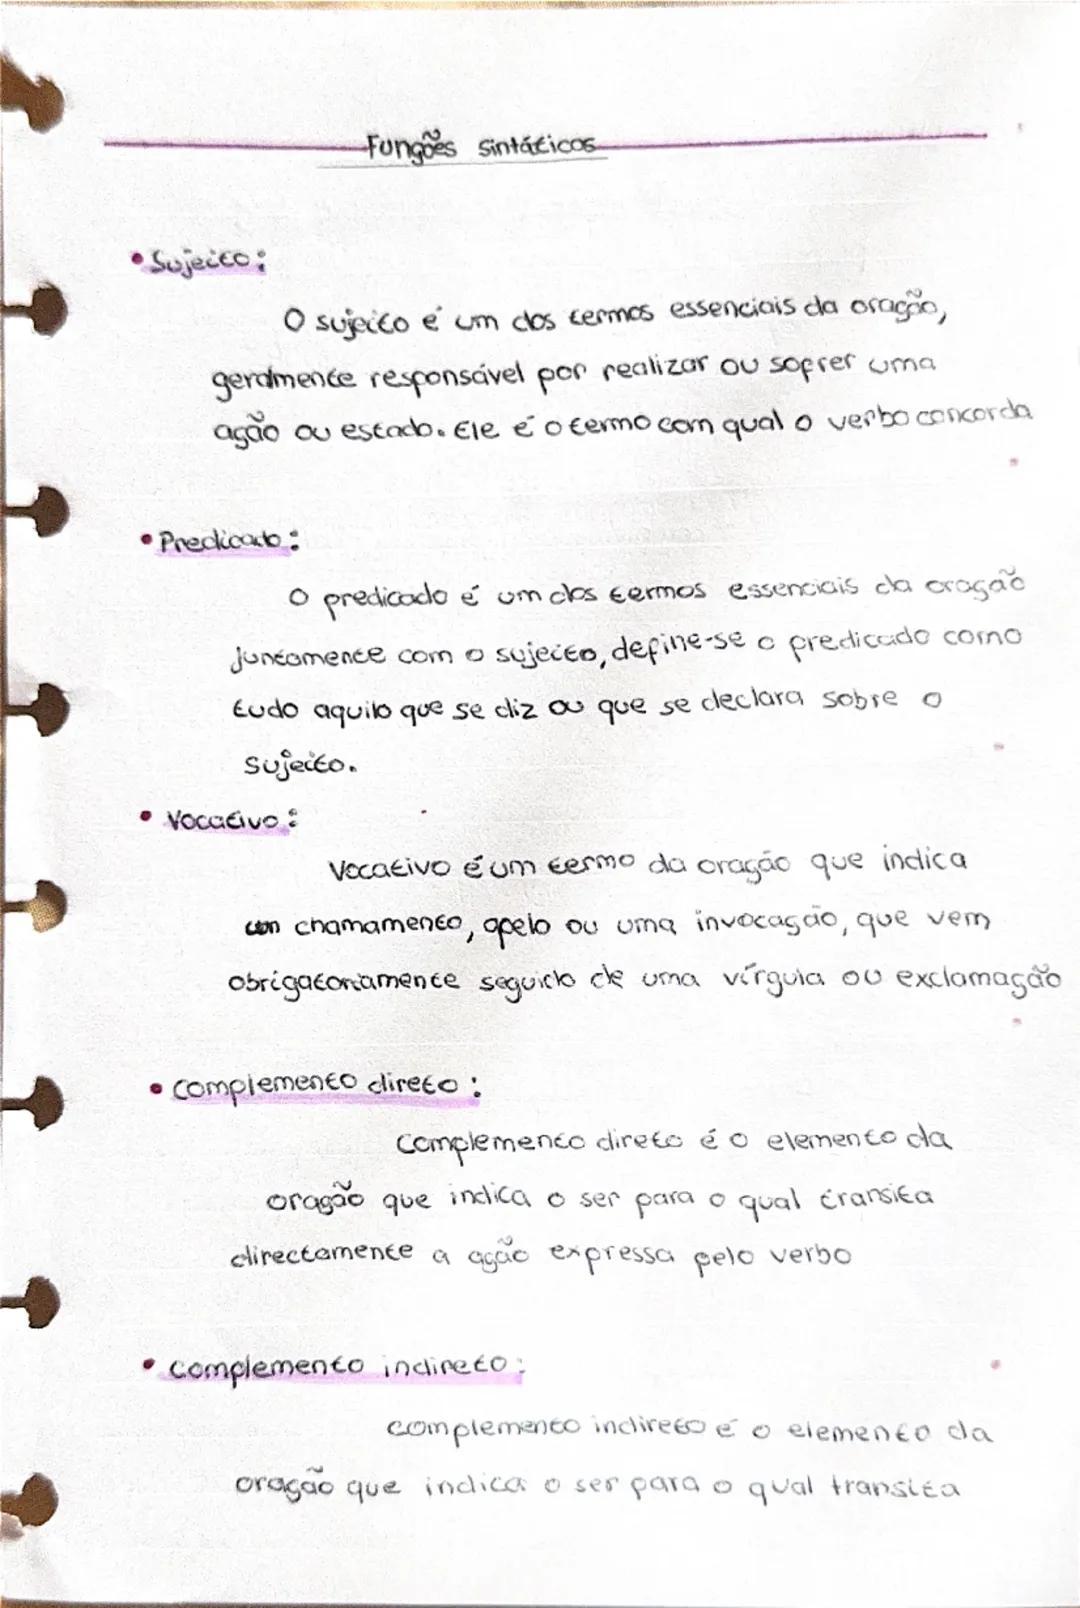 Funções sintáticos
• Sujeito:
O sujeito é um dos termos essenciais da oração,
geralmente responsável por realizar ou sofrer uma
ação ou estado. Ele é o termo com qual o verbo concorda
• Predicado:
O predicado é um dos termos essenciais da oração
juntamente com o sujeito, define-se o predicado como
tudo aquilo que se diz ou que se declara sobre o
sujeito.
• Vocativo:
Vocativo é um termo da oração que indica
um chamamento, apelo ou uma invocação, que vem
obrigatoriamente seguido de uma vírgula ou exclamação
• Complemento direto:
Complemento direto é o elemento da
oração que indica o ser para o qual transita
directamente a ação expressa pelo verbo
• Complemento indireto:
complemento indireto é o elemento da
oração que indica o ser para o qual transita